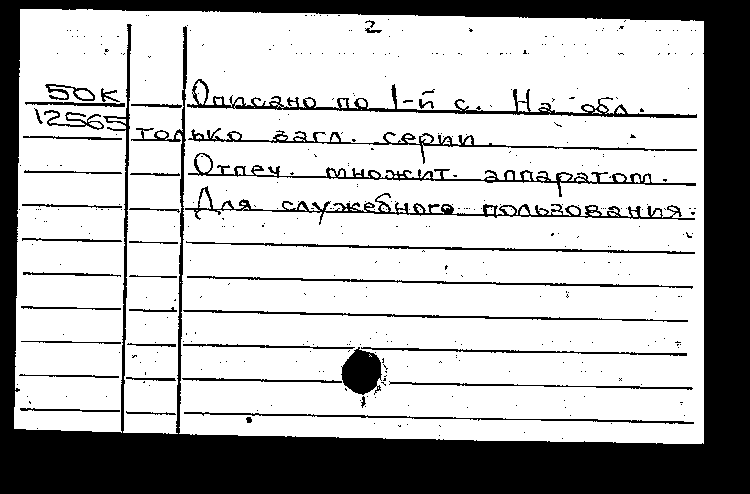 2
50К Описано по 1-й с. На обл.
12565 только загл. серии.
Отпеч. множит. аппаратом.
Для служебного пользования.